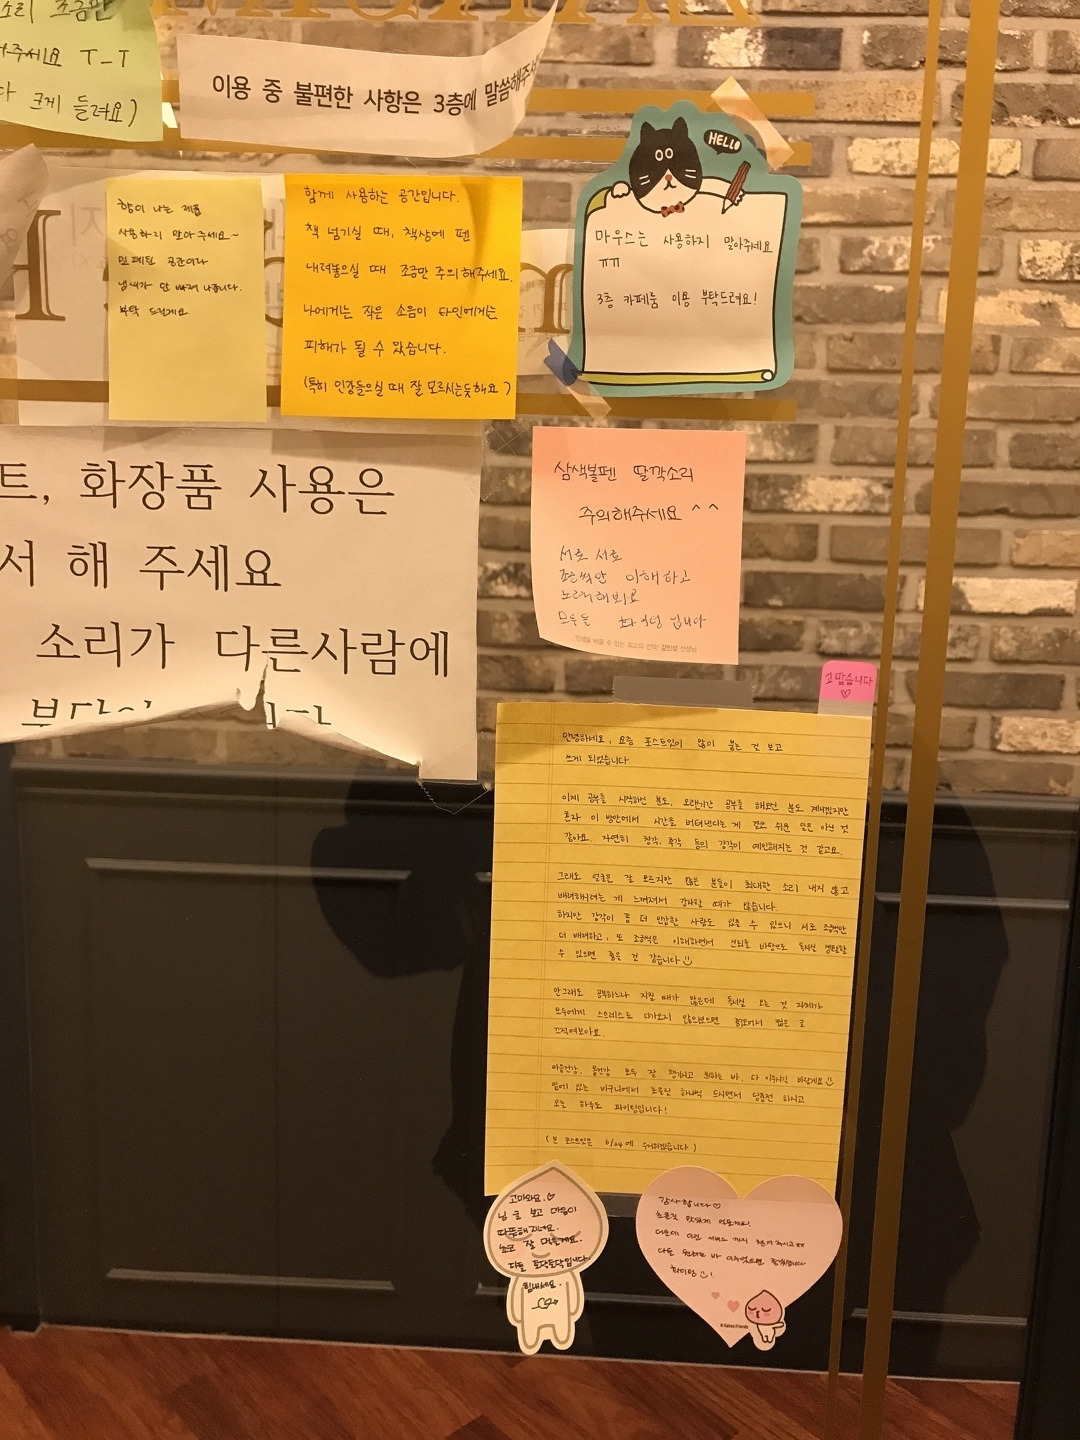 소리 조금만
주세요 T_T
다 크게 들려요)
이용 중 불편한 사항은 3층에 말씀해주
향이 나는 제품
사용하지 말아주세요~
밀폐된 공간이라
냄새가 안 빠져 나갑니다.
부탁 드릴게요.
함께 사용하는 공간입니다.
책 넘기실 때, 책상에 펜
내려놓으실 때 조금만 주의해주세요.
나에게는 작은 소음이 타인에게는
피해가 될 수 있습니다.
(특히 인강들으실 때 잘 모르시는듯해요)
HELLO
마우스는 사용하지 말아주세요
ㅠㅠ
3층 카페룸 이용 부탁드려요!
트, 화장품 사용은
서 해 주세요
소리가 다른사람에
삼색볼펜 딸깍소리
주의해주세요 ^^
서로 서로
조금씩만 이해하고
노력해봐요
모두들 화이팅 입니다
인생을 바꿀 수 있는 최고의 선택! 강민성 선생님
고맙습니다
♡
안녕하세요, 요즘 포스트잇이 많이 붙는 걸 보고
쓰게 되었습니다.
이제 공부를 시작하신 분도, 오랜기간 공부를 해오신 분도 계시겠지만
혼자 이 방안에서 시간을 버텨낸다는 게 결코 쉬운 일은 아닌 것
같아요. 자연히 청각, 후각 등의 감각이 예민해지는 것 같고요.
그래도 얼굴은 잘 모르지만 많은 분들이 최대한 소리 내지 않고
배려하시려는 게 느껴져서 감사할 때가 많습니다.
하지만 감각이 좀 더 민감한 사람도 있을 수 있으니 서로 조금씩만
더 배려하고, 또 조금씩은 이해하면서 신뢰를 바탕으로 독서실 생활할
수 있으면 좋을 것 같습니다
안그래도 공부하느라 지칠 때가 많은데 독서실 오는 것 자체가
모두에게 스트레스로 다가오지 않으셨으면 좋겠어서 짧은 글
끄적여보아요.
마음건강, 몸건강 모두 잘 챙기시고 원하는 바, 다 이루시길 바랄게요
밑에 있는 바구니에서 초콜릿 하나씩 드시면서 당충전 하시고
오늘 하루도 파이팅입니다!
(본 포스트잇은 6/24에 수거하겠습니다)
고마워요.♡
님 글 보고 마음이
따뜻해지네요.
초코 잘 먹을게요.
다들 토닥토닥입니다.
힘내세요.
감사합니다♡
초콜릿 맛있게 먹을게요.
다들 원하는 바 이루셨으면 좋겠습니다
화이팅!
© Kakao Friends